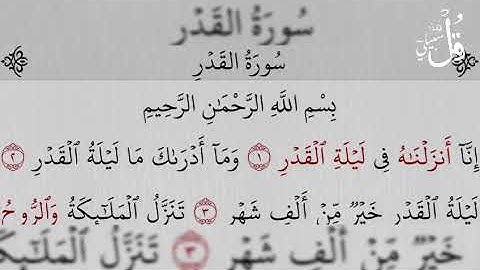 سُورَةُ القَدْرِ
قُلْ
سُورَةُ القَدْرِ
بِسْمِ اللَّهِ الرَّحْمَٰنِ الرَّحِيمِ
إِنَّآ أَنزَلْنَٰهُ فِى لَيْلَةِ ٱلْقَدْرِ ١ وَمَآ أَدْرَىٰكَ مَا لَيْلَةُ ٱلْقَدْرِ ٢
لَيْلَةُ ٱلْقَدْرِ خَيْرٌ مِّنْ أَلْفِ شَهْرٍ ٣ تَنَزَّلُ ٱلْمَلَٰٓئِكَةُ وَٱلرُّوحُ
خَيْرٌ مِّنْ أَلْفِ شَهْرٍ ٣ تَنَزَّلُ ٱلْمَلَٰٓئِكَةُ